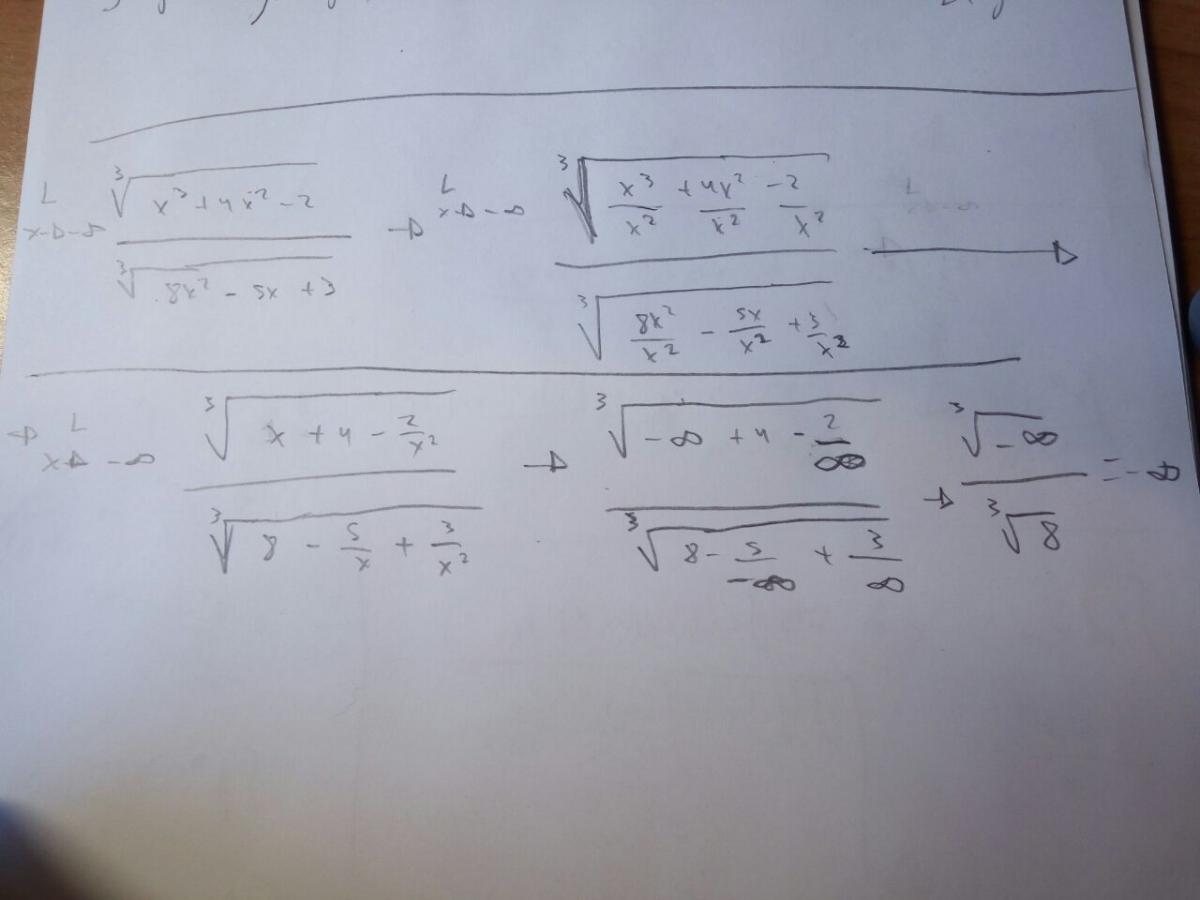 L x→-∞ ∛(x³+4x²-2) / ∛(8x² - 5x + 3) → L x→-∞ ∛(x³/x² + 4x²/x² - 2/x²) / ∛(8x²/x² - 5x/x² + 3/x²) →
→ L x→-∞ ∛(x + 4 - 2/x²) / ∛(8 - 5/x + 3/x²) → ∛(-∞ + 4 - 2/∞) / ∛(8 - 5/-∞ + 3/∞) → ∛-∞ / ∛8 = -∞